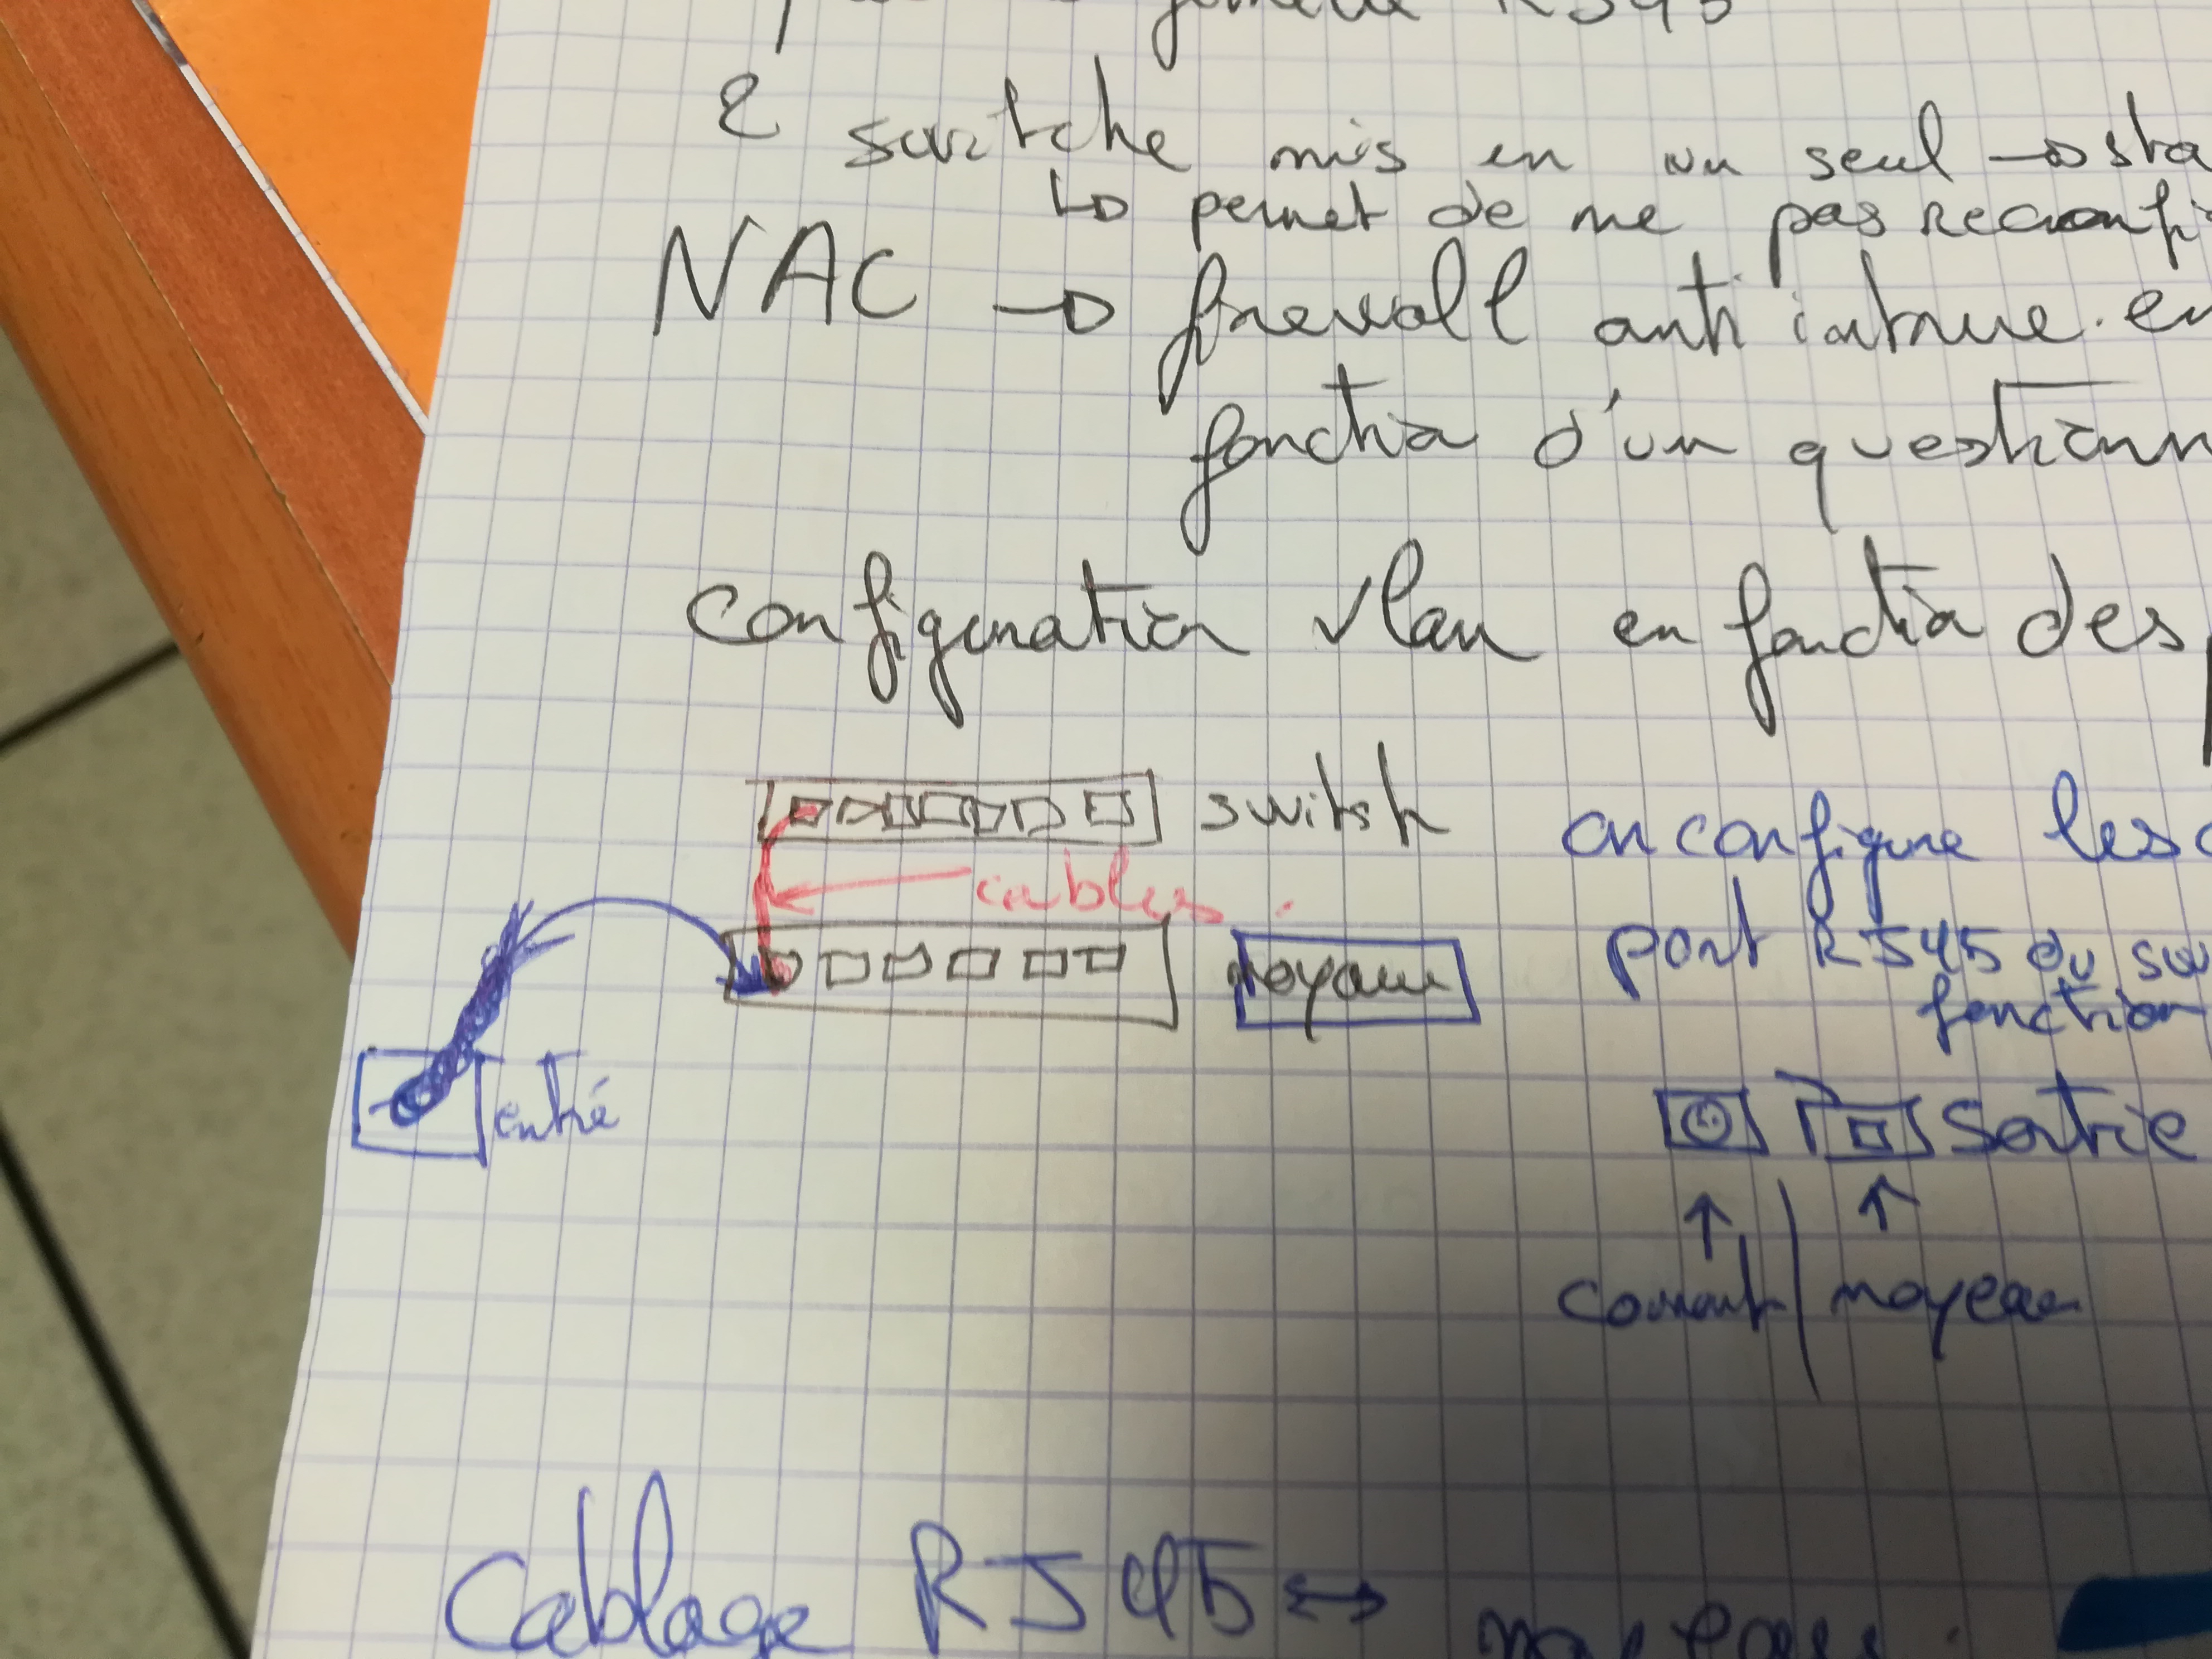 femelle RJ45
2 switche mis en un seul → sta
↳ permet de ne pas reconfi
NAC → firewall anti intrue. en
fonction d'un questionn
configuration vlan en fonction des p
switsh
on configure les
cables.
port RJ45 du sw
noyaux
fonction
entré
Sortie
courant / noyeau
Cablage RJ45 ↔ noyeaux.